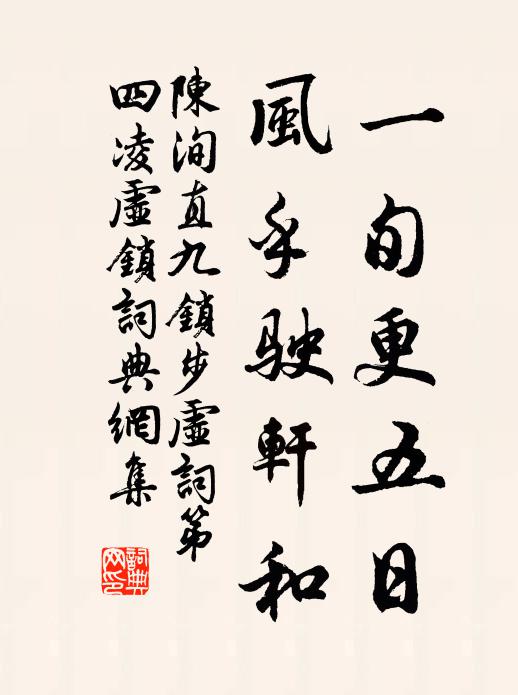 一旬更五日
風乎駛軒和
陳洵直九鎖步虛詞第
四凌虛鎖詞典網集
詞典網印